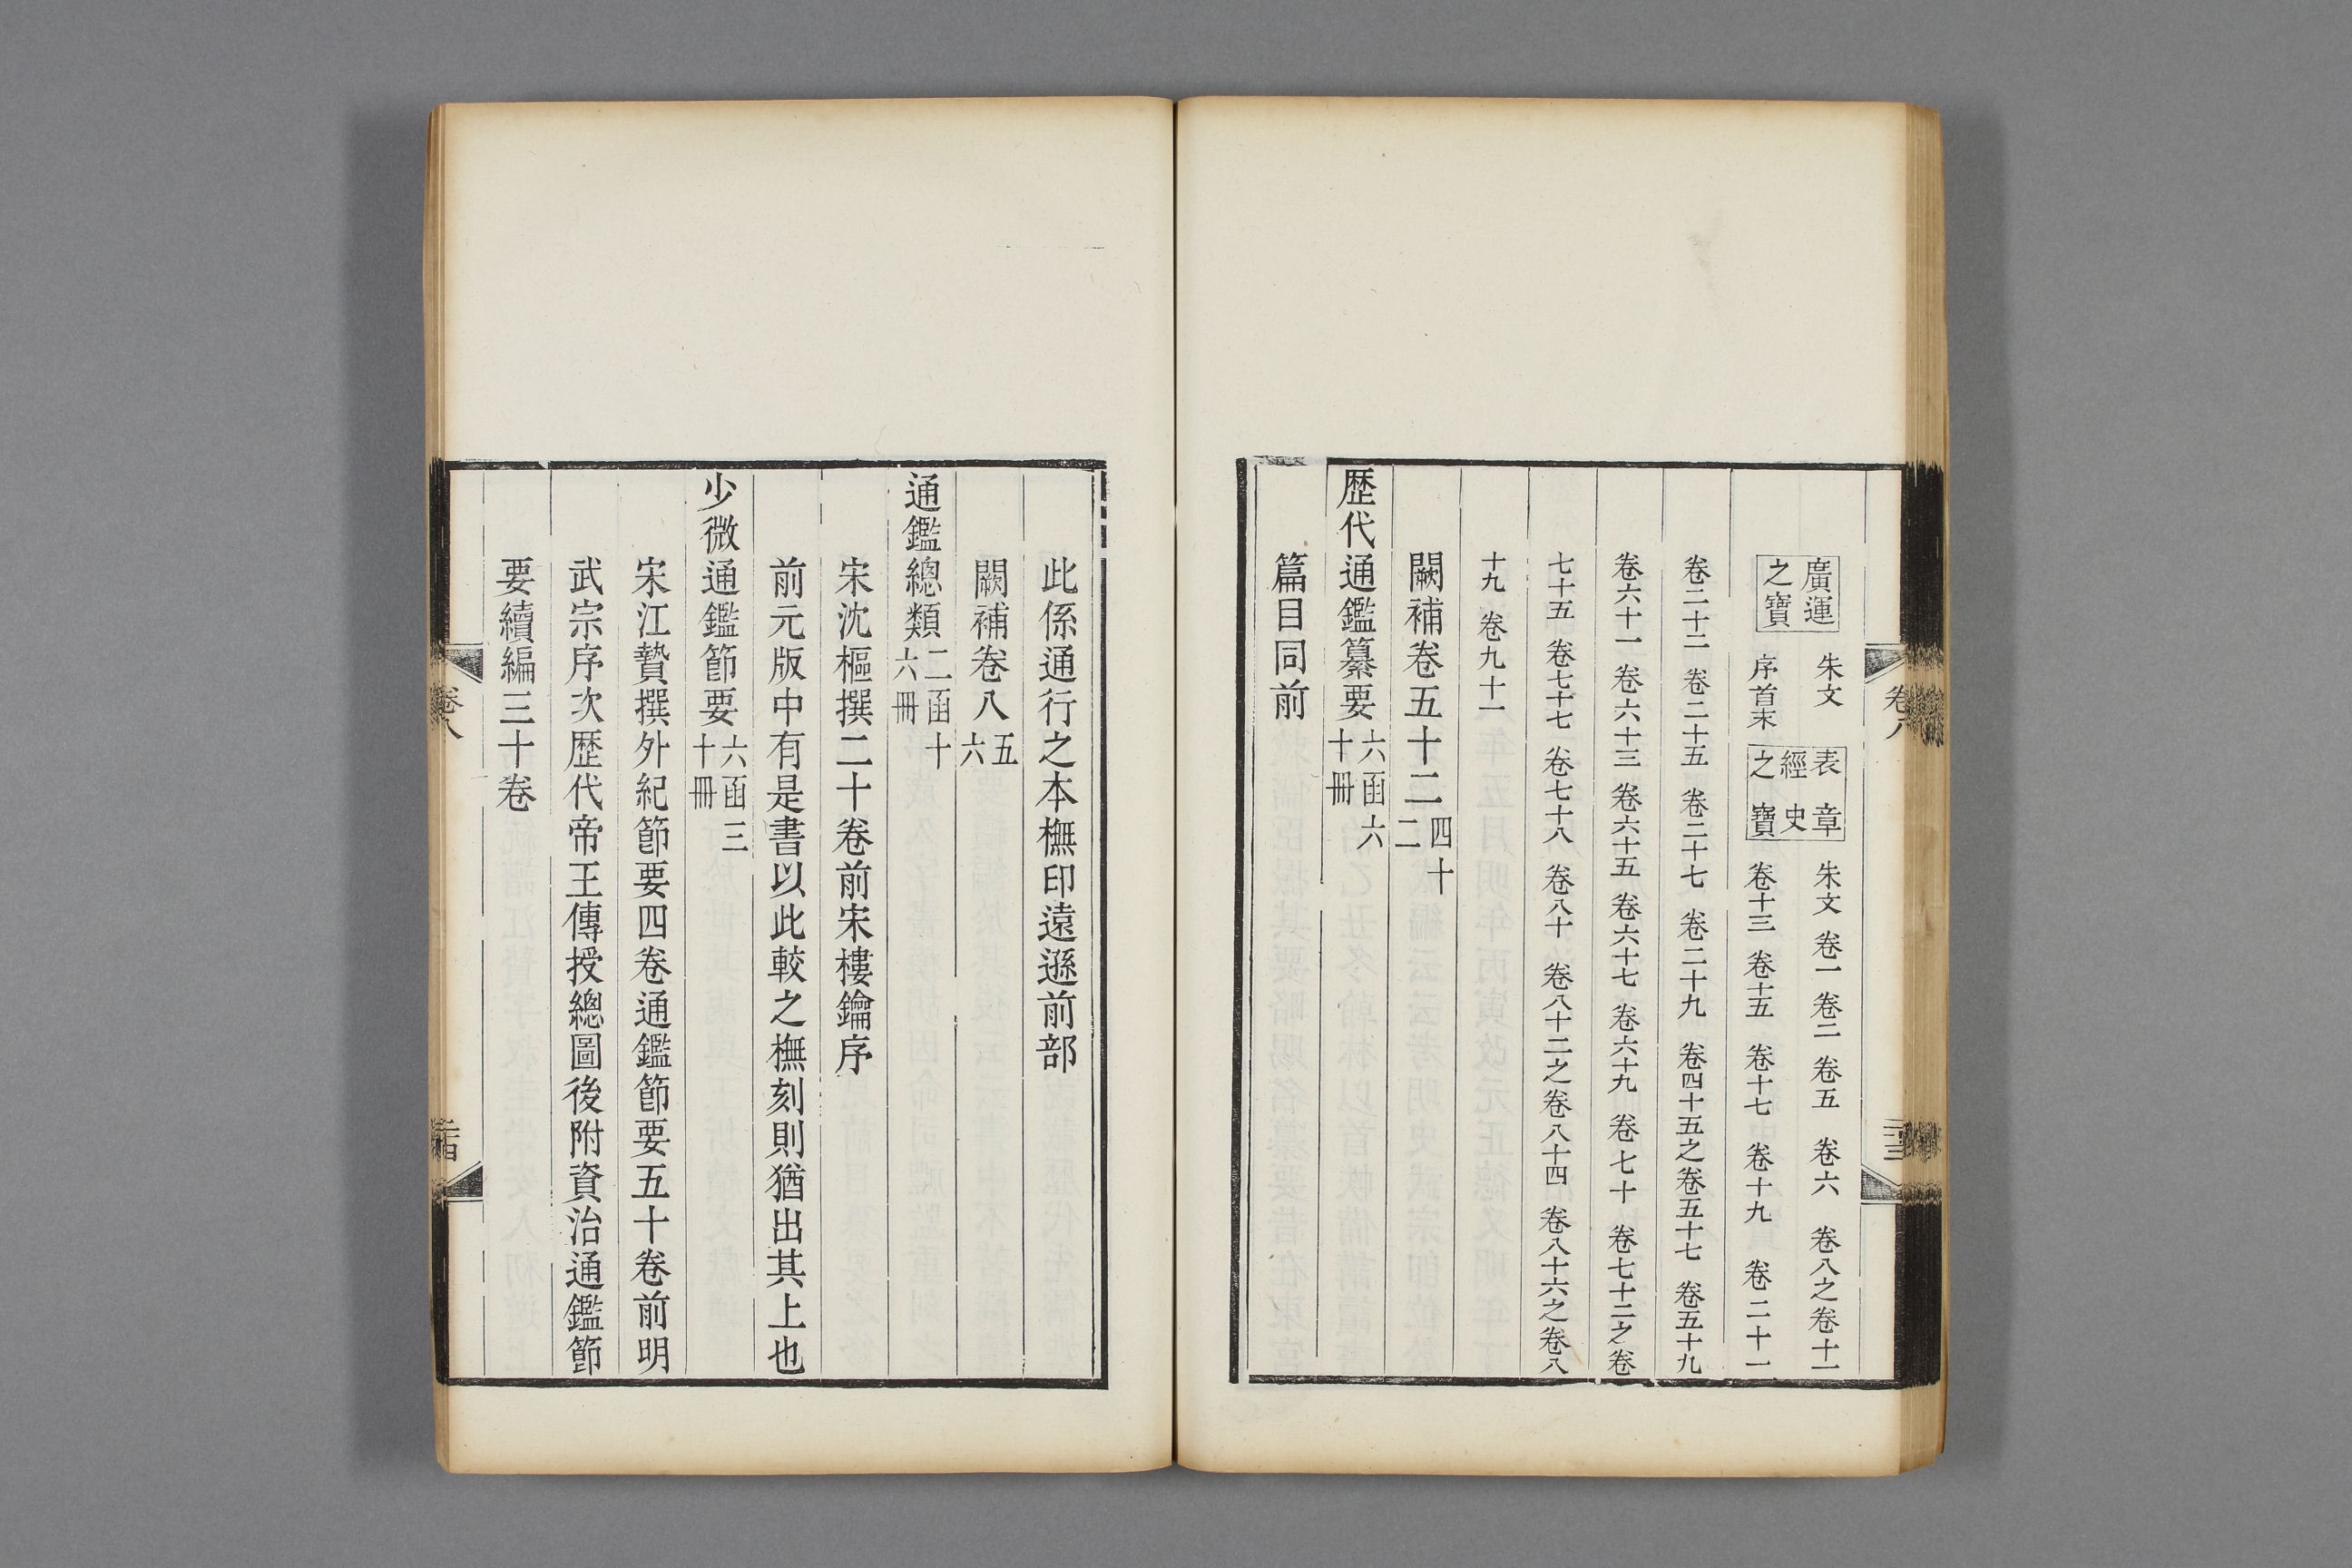 廣運之寶 朱文 序首末 表章經史之寶 朱文 卷一 卷二 卷五 卷六 卷八之卷十一
卷十三 卷十五 卷十七 卷十九 卷二十一
卷二十二 卷二十五 卷二十七 卷二十九 卷四十五之卷五十七 卷五十九
卷六十一 卷六十三 卷六十五 卷六十七 卷六十九 卷七十 卷七十二之卷
七十五 卷七十七 卷七十八 卷八十 卷八十二之卷八十四 卷八十六之卷八
十九 卷九十一
闕補卷五十二 四十二
歷代通鑑纂要 六函六十冊
篇目同前
卷八
此係通行之本橅印遠遜前部
闕補卷八 五六
通鑑總類 二函十六冊
宋沈樞撰二十卷前宋樓鑰序
前元版中有是書以此較之橅刻則猶出其上也
少微通鑑節要 六函三十冊
宋江贄撰外紀節要四卷通鑑節要五十卷前明
武宗序次歷代帝王傳授總圖後附資治通鑑節
要續編三十卷
卷八